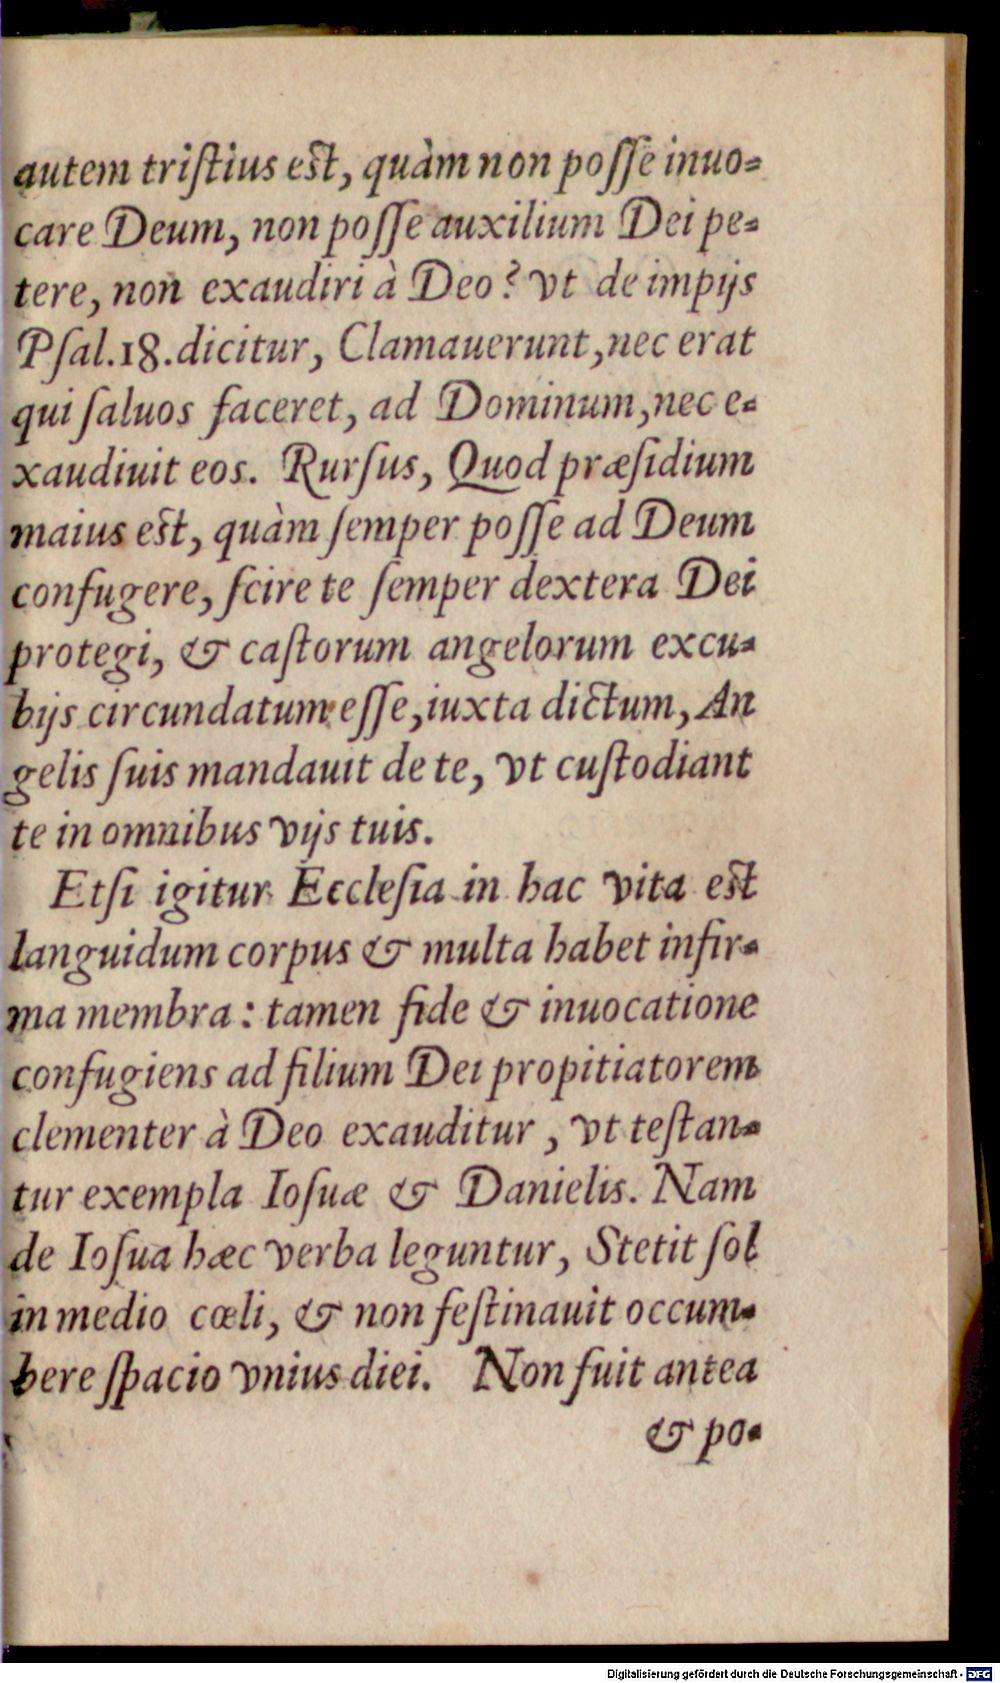 autem triſtius eſt, quàm non poſſe inuo⸗
care Deum, non poſſe auxilium Dei pe⸗
tere, non exaudiri à Deo? vt de impijs
Pſal.18.dicitur, Clamauerunt, nec erat
qui ſaluos faceret, ad Dominum, nec e⸗
xaudiuit eos. Rurſus, Quod præſidium
maius eſt, quàm ſemper poſſe ad Deum
confugere, ſcire te ſemper dextera Dei
protegi, & caſtorum angelorum excu⸗
bijs circundatum eſſe, iuxta dictum, An
gelis ſuis mandauit de te, vt cuſtodiant
te in omnibus vijs tuis.
Etſi igitur Eccleſia in hac vita eſt
languidum corpus & multa habet infir⸗
ma membra : tamen fide & inuocatione
confugiens ad filium Dei propitiatorem
clementer à Deo exauditur, vt teſtan⸗
tur exempla Ioſuæ & Danielis. Nam
de Ioſua hæc verba leguntur, Stetit ſol
in medio cœli, & non feſtinauit occum⸗
bere ſpacio vnius diei. Non fuit antea
& po⸗
Digitalisierung gefördert durch die Deutsche Forschungsgemeinschaft - DFG